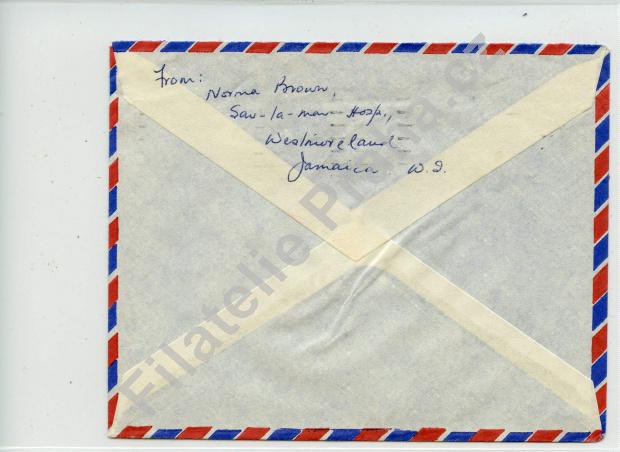 From:
Norma Brown,
Sav-la-mar Hosp.,
Westmoreland
Jamaica W.I.
Filatelie Praha.cz